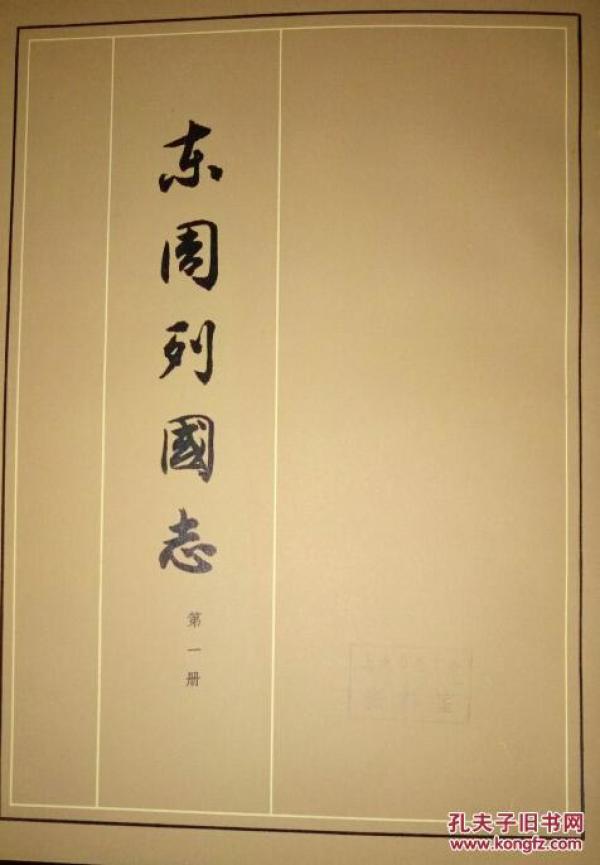 东周列國志
第一册
孔夫子旧书网
www.kongfz.com